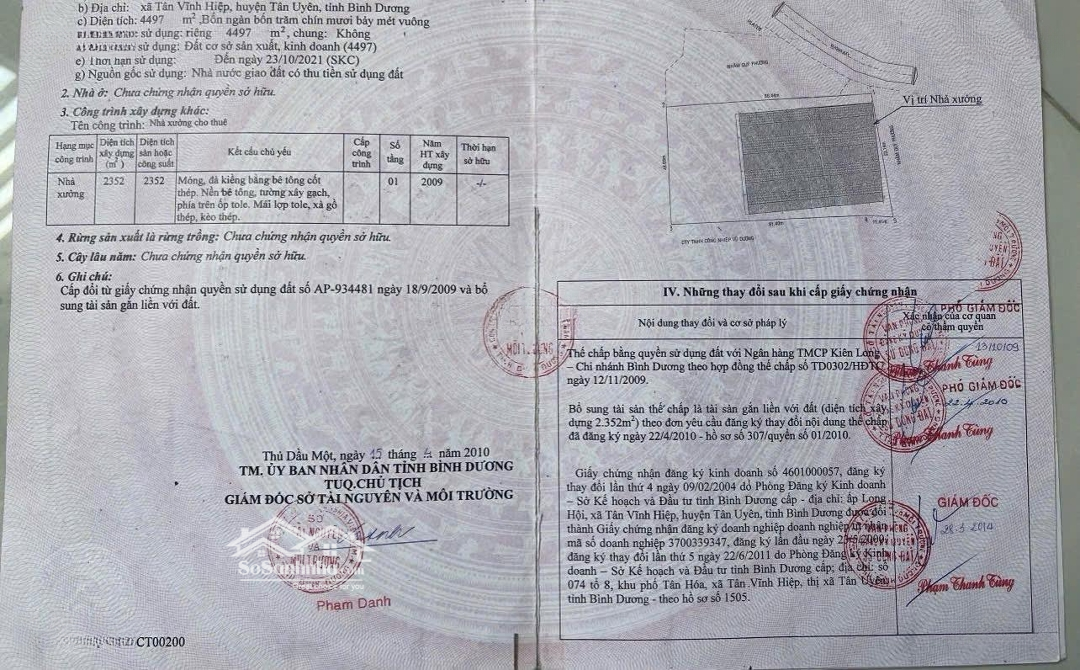 b) Địa chỉ: xã Tân Vĩnh Hiệp, huyện Tân Uyên, tỉnh Bình Dương
c) Diện tích: 4497 m², Bốn ngàn bốn trăm chín mươi bảy mét vuông
sử dụng: riêng 4497 m², chung: Không
sử dụng: Đất cơ sở sản xuất, kinh doanh (4497)
e) Thời hạn sử dụng: Đến ngày 23/10/2021 (SKC)
g) Nguồn gốc sử dụng: Nhà nước giao đất có thu tiền sử dụng đất
2. Nhà ở: Chưa chứng nhận quyền sở hữu.
3. Công trình xây dựng khác:
Tên công trình: Nhà xưởng cho thuê
Hạng mục công trình
Diện tích xây dựng (m²)
Diện tích sàn hoặc công suất
Kết cấu chủ yếu
Cấp công trình
Số tầng
Năm HT xây dựng
Thời hạn sở hữu
Nhà xưởng
2352
2352
Móng, đà kiềng bằng bê tông cốt
thép. Nền bê tông, tường xây gạch,
phía trên ốp tole. Mái lợp tole, xà gồ
thép, kèo thép.
01
2009
-/-
4. Rừng sản xuất là rừng trồng: Chưa chứng nhận quyền sở hữu.
5. Cây lâu năm: Chưa chứng nhận quyền sở hữu.
6. Ghi chú:
Cấp đổi từ giấy chứng nhận quyền sử dụng đất số AP-934481 ngày 18/9/2009 và bổ
sung tài sản gắn liền với đất.
Thủ Dầu Một, ngày 15 tháng năm 2010
TM. ỦY BAN NHÂN DÂN TỈNH BÌNH DƯƠNG
TUQ.CHỦ TỊCH
GIÁM ĐỐC SỞ TÀI NGUYÊN VÀ MÔI TRƯỜNG
SoSanhnha.com
Phạm Danh
CT00200
Vị trí Nhà xưởng
IV. Những thay đổi sau khi cấp giấy chứng nhận
Nội dung thay đổi và cơ sở pháp lý
Xác nhận của cơ quan
có thẩm quyền
PHÓ GIÁM ĐỐC
Thế chấp bằng quyền sử dụng đất với Ngân hàng TMCP Kiên Long
– Chi nhánh Bình Dương theo hợp đồng thế chấp số TD0302/HĐTC
ngày 12/11/2009.
Phạm Thanh Tùng
PHÓ GIÁM ĐỐC
22.4.2010
Bổ sung tài sản thế chấp là tài sản gắn liền với đất (diện tích xây
dựng 2.352m²) theo đơn yêu cầu đăng ký thay đổi nội dung thế chấp
đã đăng ký ngày 22/4/2010 - hồ sơ số 307/quyển số 01/2010.
Phạm Thanh Tùng
Giấy chứng nhận đăng ký kinh doanh số 4601000057, đăng ký
thay đổi lần thứ 4 ngày 09/02/2004 do Phòng Đăng ký Kinh doanh
– Sở Kế hoạch và Đầu tư tỉnh Bình Dương cấp - địa chỉ: ấp Long
Hội, xã Tân Vĩnh Hiệp, huyện Tân Uyên, tỉnh Bình Dương được đổi
thành Giấy chứng nhận đăng ký doanh nghiệp doanh nghiệp tư nhân
mã số doanh nghiệp 3700339347, đăng ký lần đầu ngày 23/5/2000,
đăng ký thay đổi lần thứ 5 ngày 22/6/2011 do Phòng Đăng ký Kinh
doanh – Sở Kế hoạch và Đầu tư tỉnh Bình Dương cấp; địa chỉ: số
074 tổ 8, khu phố Tân Hóa, xã Tân Vĩnh Hiệp, thị xã Tân Uyên,
tỉnh Bình Dương - theo hồ sơ số 1505.
GIÁM ĐỐC
28.3.2014
Phạm Thanh Tùng